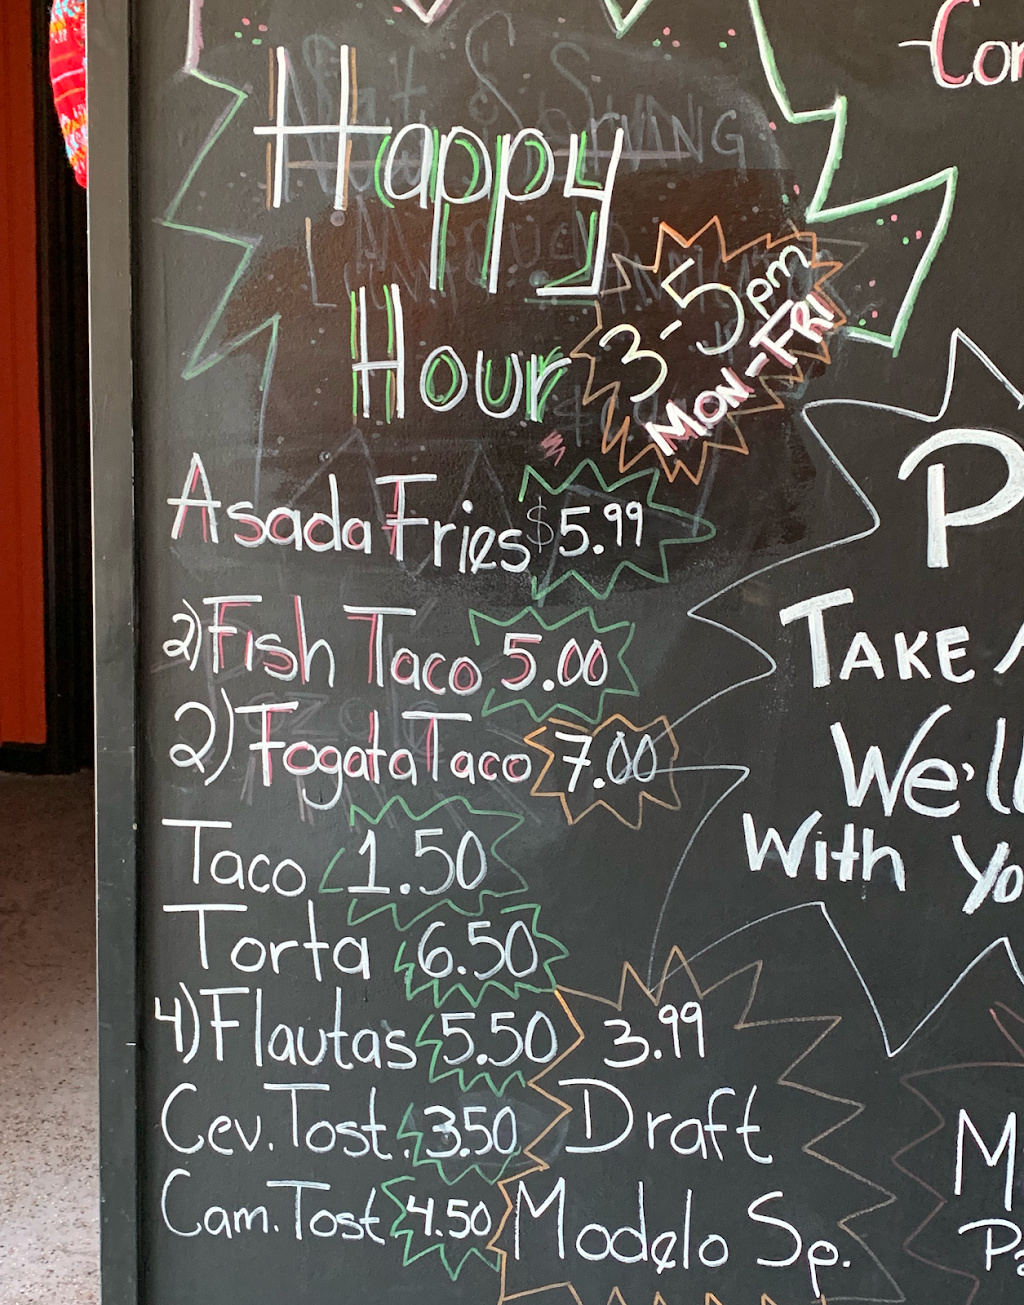 Happy
Hour
3-5pm
Mon-Fri
Asada Fries $5.99
2) Fish Taco 5.00
2) Fogata Taco 7.00
Taco 1.50
Torta 6.50
4) Flautas 5.50
Cev. Tost. 3.50
Cam. Tost 4.50
3.99
Draft
Modelo Sp.
Take
We'll
With